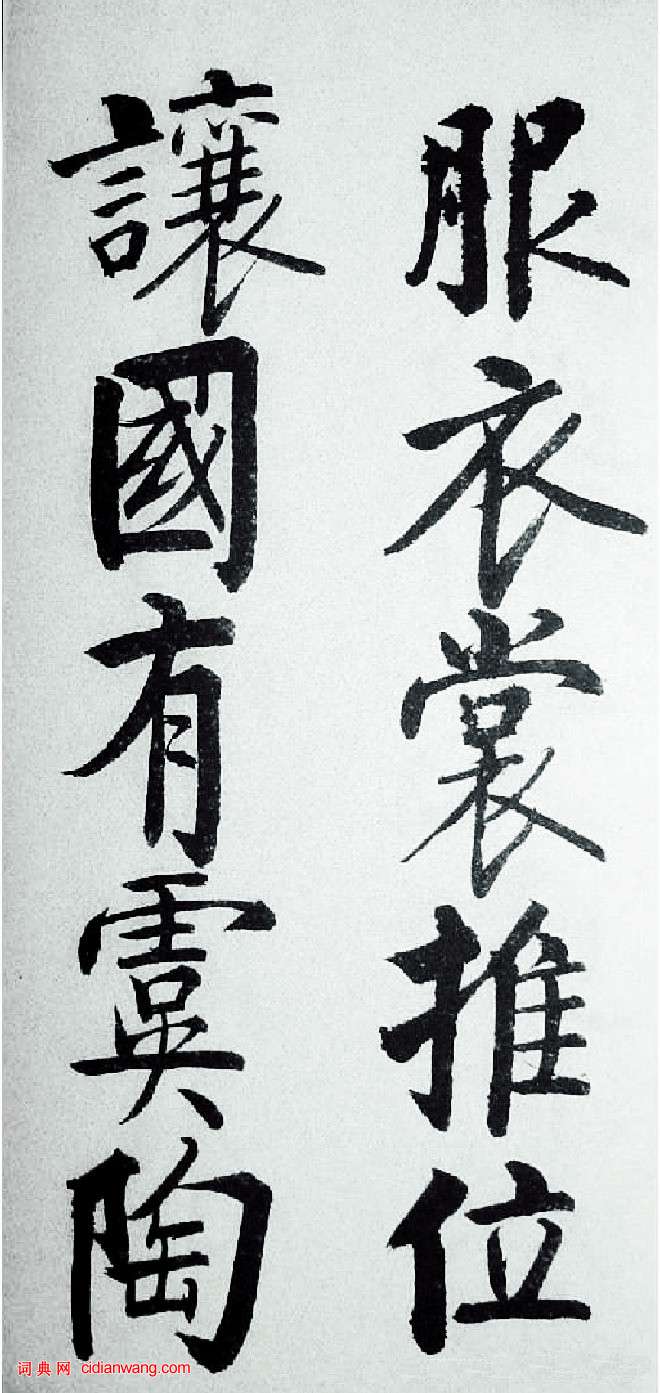 服衣裳推位
讓國有虞陶
词典网 cidianwang.com